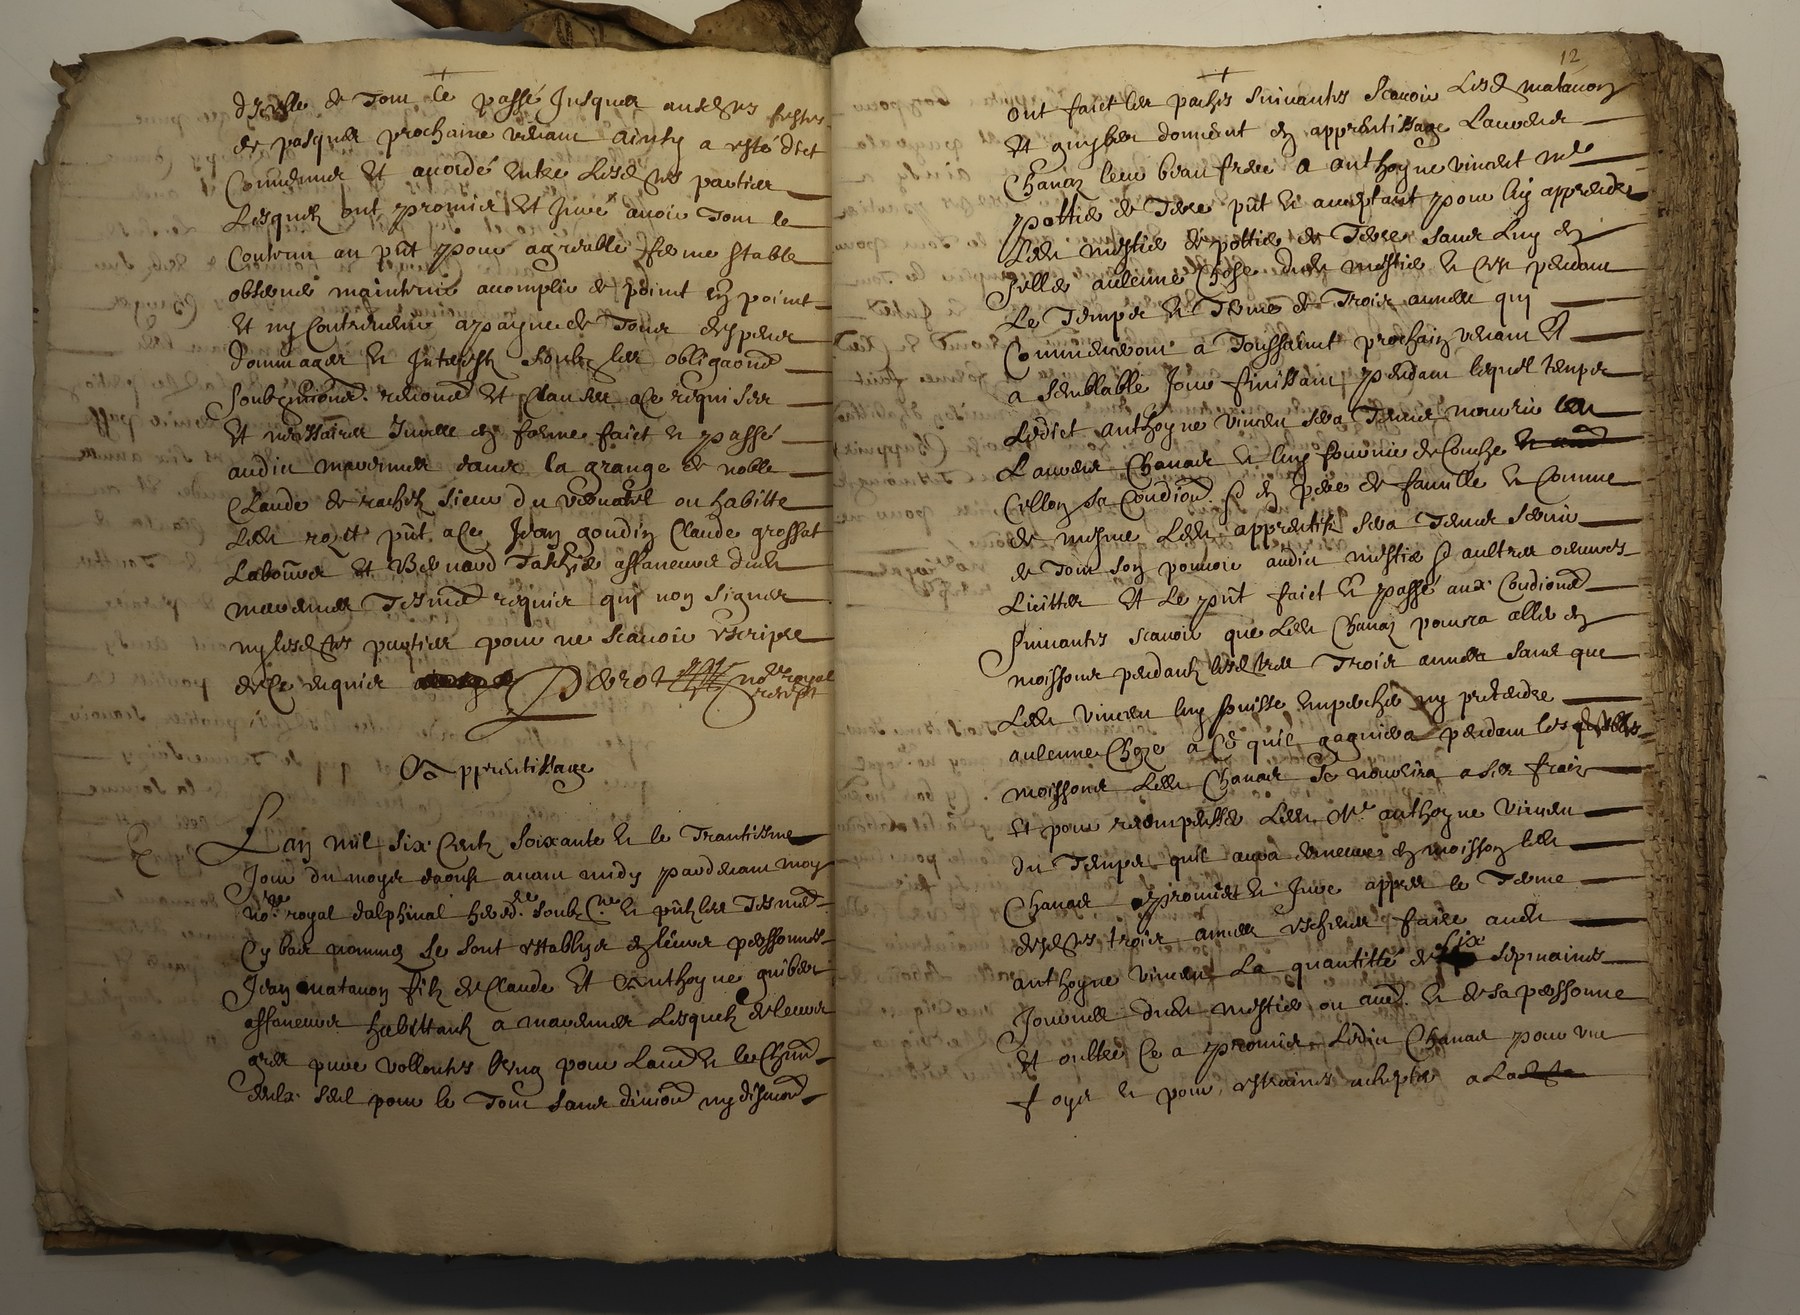 de tout le passé jusques ausd festes
de pasques prochaine venant ainsy a esté dict
Convenu et acordé entre lesd parties
Lesquels ont promis et juré avoir tout le
Contenu au pñt pour agreable ferme stable
observé maintenir acomplir de point en point
Et ny Contrevenir a payne de tous despens
dommages et interests soubz les obligaons
soubzmissions renons et Clauses a ce requises
Et necessaires faict et passé
audit dans la grange de noble
Claude de rachis sieur du ou habitte
Led pñt a Ce Jean goudin Claude grossat
Labour et Bernard affaneurs dud
tesmoins requis qui non signés
ny lesd parties pour ne scavoir escripre
de Ce enquis no.re royal
Apprentissage
L'an mil six Centz soixante et le Trantiesme
Jour du moys daoust avant midy pardevant moy
no.re royal dalphinal hered.re soubz.né et pñtz les Tesmoins
Cy bas nommés se sont establys en leurs personnes
Jean matavon filz de Claude et Anthoyne guiber
affaneurs habittantz a Lesquelz de leurs
gres pures vollontes l'ung pour Lautre et le Chun
deulx seul pour le Tout sans division ny discution
12
ont faict les pactes suivantes scavoir Lesd matavon
Et guiber donnent en apprentissage Laurens
Chanas leur beau frere a anthoyne vincent m.re
pottier de Terre pñt et acceptant pour luy apprendre
Led mestier de pottier de Terre sans luy en
Celler aulcune Chose dud mestier et Ce pendant
Le Temps et Terme de Trois années qui
Commenceront a Toussaint prochain venant Et
a semblable Jour finissant pendant lequel temps
Ledict anthoyne vincent sera Tenu nourrir led
Laurens Chanas et luy fournir de Couche
sellon sa Condion en pere de famille et Comme
de mesme Led apprentis sera Tenu servir
de Tout son pouvoir audit mestier aultres oeuvres
Licittes Et Le pñt faict et passé aux Condions
suivantes scavoir que Led Chanas pourra aller en
moissons pendant lesd Trois années sans que
Led vincent luy puisse empecher ny pretendre
aulcune Choze a Ce quil gagniera pendant lesquelles
moissons Led Chanas se nourrira a ses frais
Et pour recompenser Led M.re anthoyne vincent
du Temps quil aura demeuré en moisson led
Chanas a promis et Juré appres le Terme
desd trois années escheus faire aud
anthoyne vincent La quantitté de six sepmaines
Journée dud mestier ou aue et de sa personne
Et oultre Ce a promis Ledit Chanas pour une
foys et pour estraines achepter a